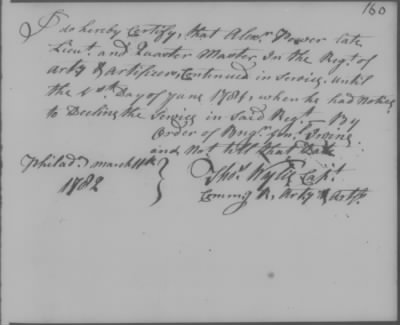 160
I do hereby Certify, that Alexr. Power late
Lieut. and Quarter Master, In the Regt. of
Arty & Artificers, Continued in Service until
the Day of June 1781, when he had Notice
to Decline the Service in said Regt. — By
Order of Brigr. Genl. Irvine
and Not till that Date
Philada. March 11th
1782
Thos. Wylie Capt.
Comms. R. Arty & Artifs.